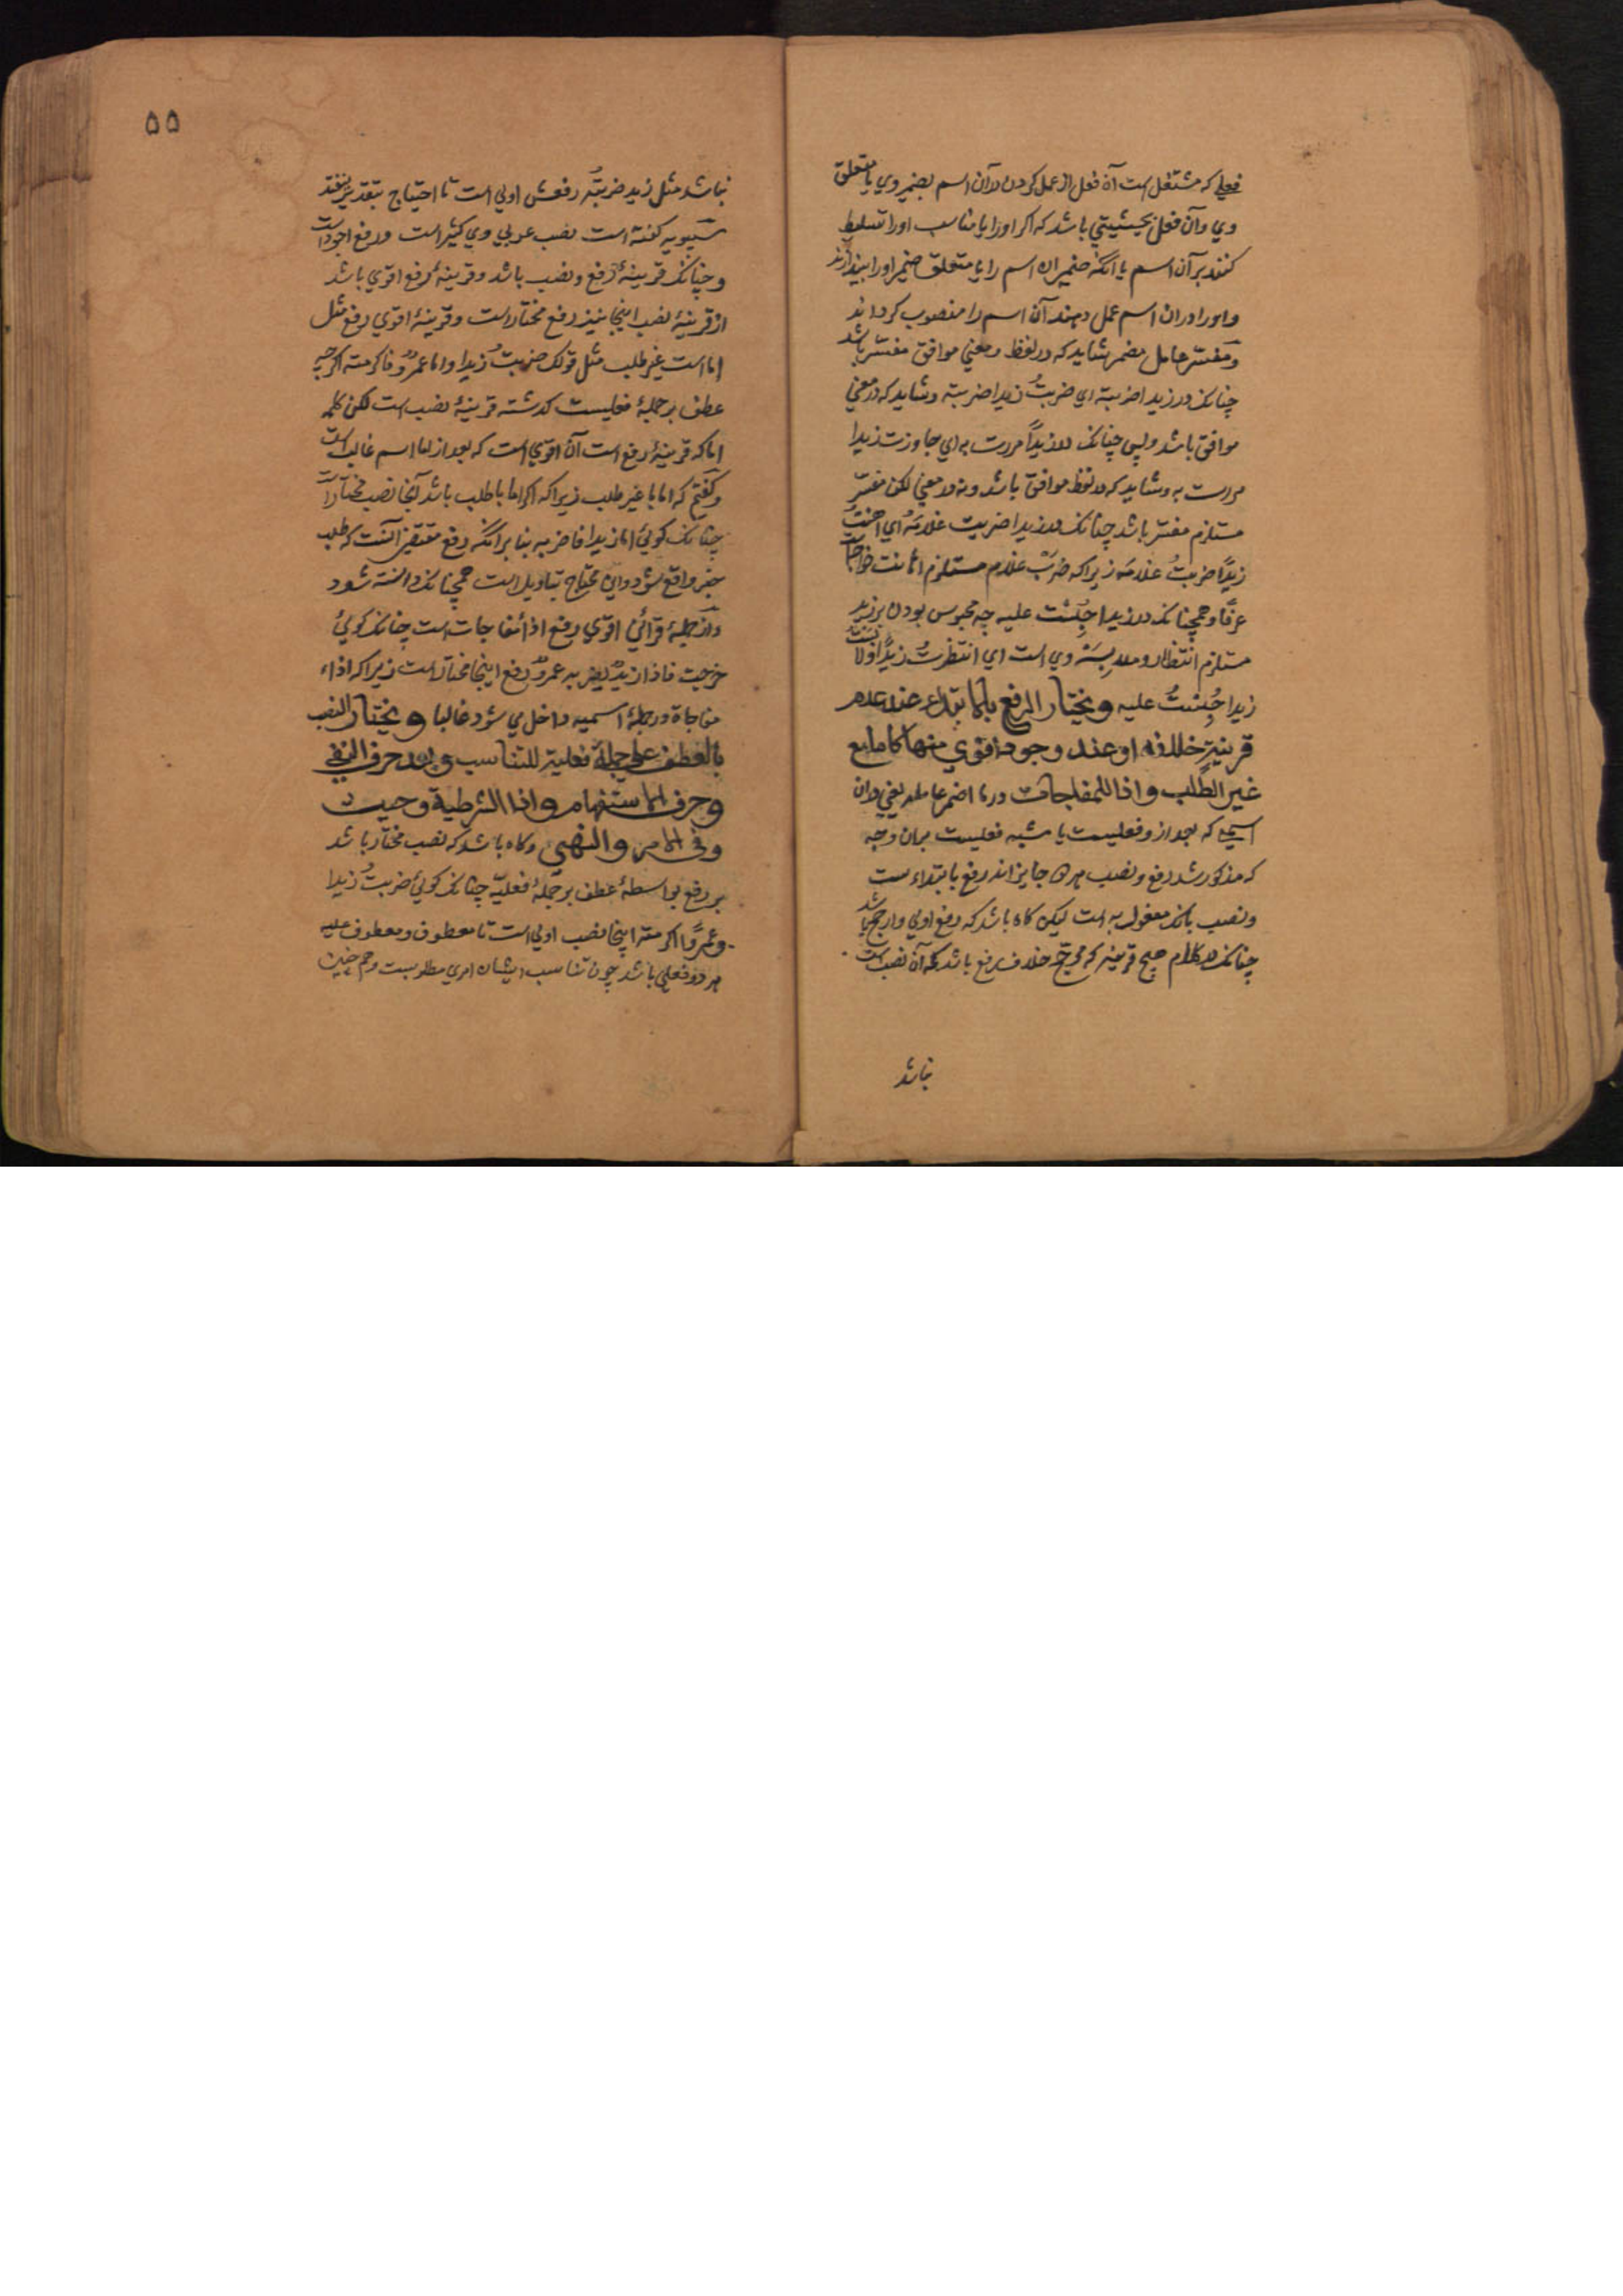 فعلي كه مشتغل است آن فعل از عمل كردن در آن اسم بضمير وي يا متعلق
وي و آن فعل بحيثيتي باشد كه اكر اورا يا مناسب اورا تسليط
كنند بر آن اسم با آنكه ضمير ان اسم را يا متعلق ضمير اورا بيندازند
و اورا در ان اسم عمل دهند آن اسم را منصوب كرداند
و مفسّر عامل مضمر شايد كه در لفظ و معني موافق مفسَّر باشد
چنانك در زيدا ضربته اي ضربتُ زيدا ضربته و شايد كه در معني
موافق باشد و بس چنانك در زيداً مررت به اي جاوزت زيدا
مررت به و شايد كه در لفظ موافق باشد و نه در معني لكن مفسّر
مستلزم مفسَّر باشد چنانك در زيدا ضربت غلامَهُ اي اهنتُ
زيدًا ضربتُ غلامه زيراكه ضرب غلام مستلزم اهانت خواجه است
عرفًا و همچنانك در زيدا حُبِسْتُ عليه چه محبوس بودن بر زيد
مستلزم انتظار و ملابسَهٔ وي است اي انتظرتُ زيدًا و لابست
زيدا حُبِستُ عليه ويختار الرفع بالابتداء عند عدم
قرينة خلافه او عند وجود اقوي منها كاما مع
غير الطلب واذا للمفاجات در ما اضمر عامله يعني در ان
اسمي كه بعد از و فعليست يا شبه فعليست بران وجه
كه مذكور شد رفع و نصب هر دو جايز اند رفع بابتداء ست
و نصب بانك مفعول به است ليكن كاه باشد كه رفع اولي و ارجح باشد
چنانك در كلام هيچ قرينه كه مرجّح خلاف رفع باشد كه آن نصب است
نباشد
۵۵
نباشد مثل زيد ضربتُه رفعش اولي است تا احتياج بتقدير نيفتد
سيبويه كفته است نصب عربي وي كثير است و رفع اجود است
و چنانك قرينهٔ رفع و نصب باشد و قرينهٔ رفع اقوي باشد
از قرينهٔ نصب اينجا نيز رفع مختار است و قرينهٔ اقوي رفع مثل
اما است غير طلب مثل قولك ضربتُ زيدا و اما عمرٌو فاكرمته اكرچه
عطف بر جملهٔ فعليست كذشته قرينهٔ نصب است لكن كلمه
اما كه قرينهٔ رفع است آن اقوي است كه بعد از اما اسم غالب است
و كفتم كه اما با غير طلب زيراكه اكر اما با طلب باشد آنجا نصب مختار است
چنانك كوئي اما زيدا فاضربه بنا بر آنكه رفع مقتضي آنست كه طلب
خبر واقع شود و اين محتاج بتاويل است همچنانك دانسته شود
و از جملهٔ قرائن اقوي رفع اذا مفاجات است چنانك كوئي
خرجت فاذا زيدٌ يضربه عمرٌو رفع اينجا مختار است زيراكه اذاء
مفاجاة در جملهٔ اسميه داخل مي شود غالبا ويختار النصب
بالعطف علي جملة فعلية للتناسب وبعد حرف النفي
وحرف الاستفهام واذا الشرطية وحيث
وفي الامر والنهي و كاه باشد كه نصب مختار باشد
بر رفع بواسطهٔ عطف بر جملهٔ فعليّه چنانك كوئي ضربتُ زيدا
و عمرًوا اكرمته اينجا نصب اولي است تا معطوف و معطوف عليه
هر دو فعلي باشد چون تناسب ايشان امري مطلوبست و هم چنين